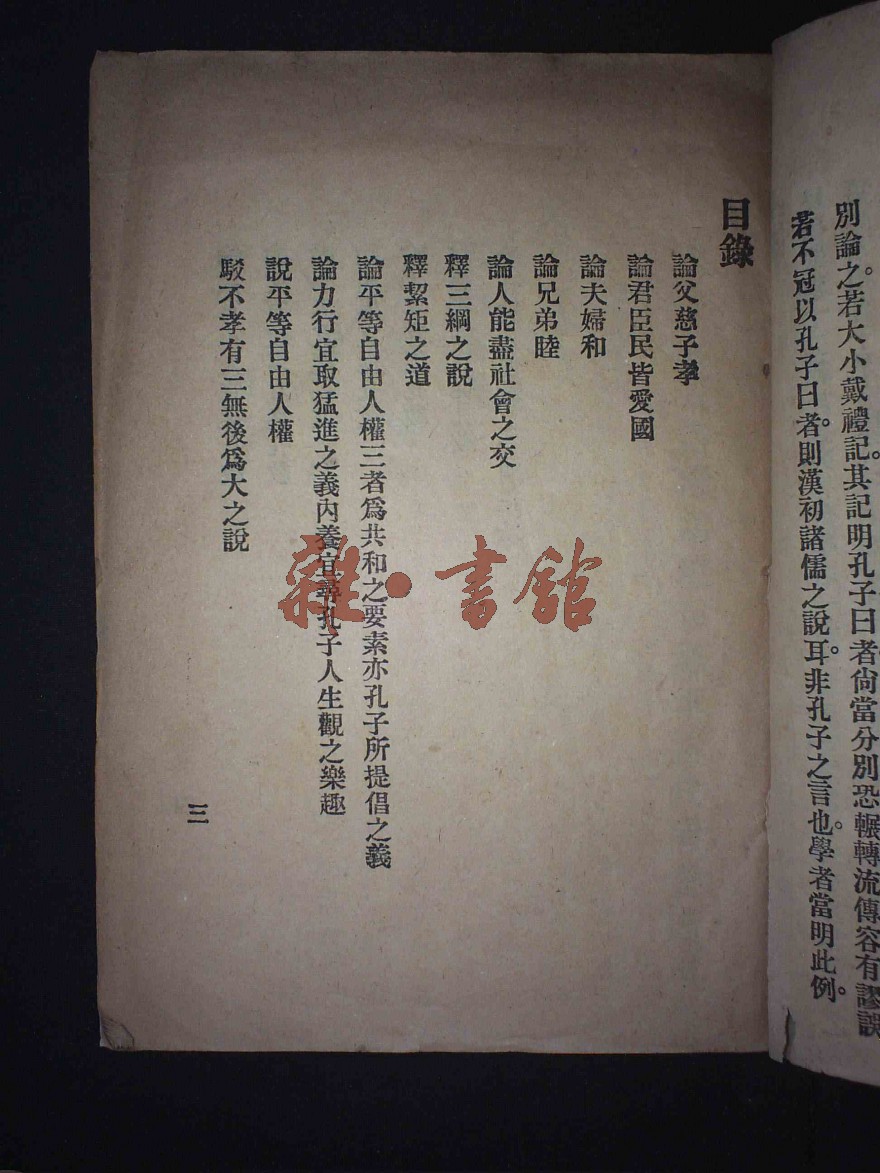 別論之。若大小戴禮記。其記明孔子曰者尙當分別恐輾轉流傳容有謬誤
若不冠以孔子曰者。則漢初諸儒之說耳。非孔子之言也。學者當明此例。
目錄
論父慈子孝
論君臣民皆愛國
論夫婦和
論兄弟睦
論人能盡社會之交
釋三綱之說
釋絜矩之道
論平等自由人權三者爲共和之要素亦孔子所提倡之義
論力行宜取猛進之義內養宜尋孔子人生觀之樂趣
說平等自由人權
駁不孝有三無後爲大之說
三
雜·書館